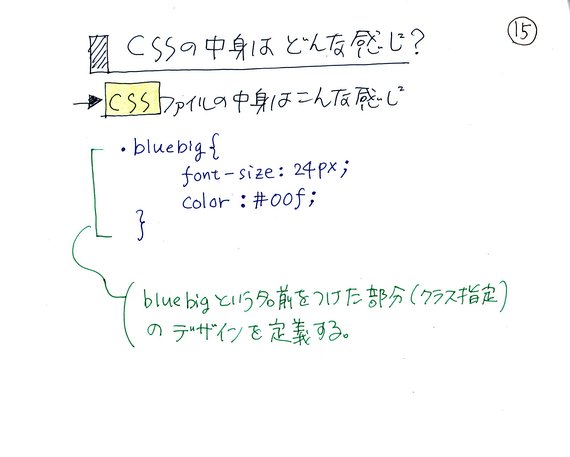 CSSの中身は どんな感じ?
⑮
→ CSSファイルの中身はこんな感じ
.bluebig{
font-size: 24px;
color : #00f;
}
bluebigという名前をつけた部分(クラス指定)
のデザインを定義する。